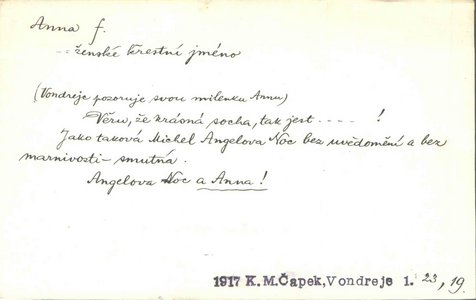 Anna f.
-- ženské křestní jméno
(Vondreje pozoruje svou milenku Annu)
Věru, že krásná socha, tak jest ---- !
Jako taková Michel Angelova Noc bez uvědomění a bez
marnivosti - smutná.
Angelova Noc a Anna!
1917 K.M.Čapek,Vondreje 1. 23, 19.